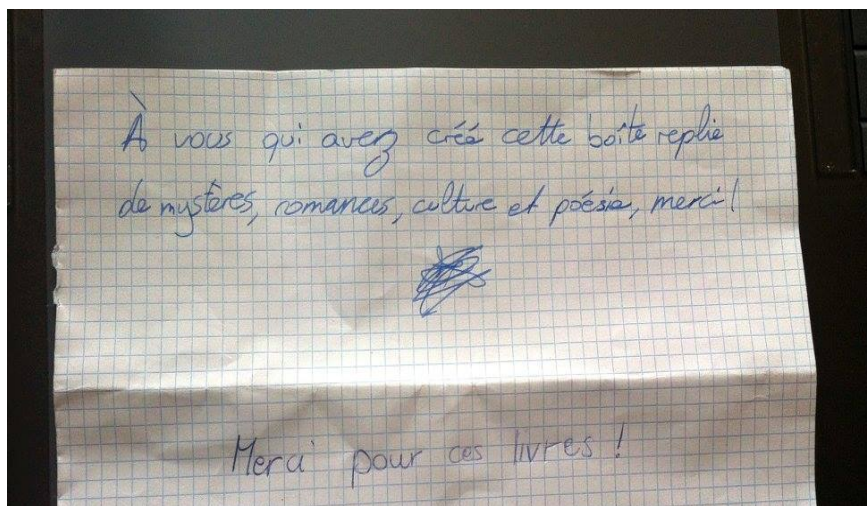 À vous qui avez créé cette boîte replie
de mystères, romances, culture et poésie, merci!
Merci pour ces livres !